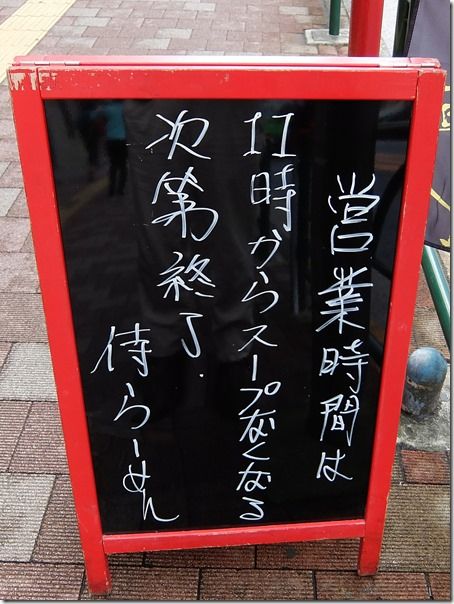 営業時間は
11時からスープなくなる
次第終了.
侍らーめん